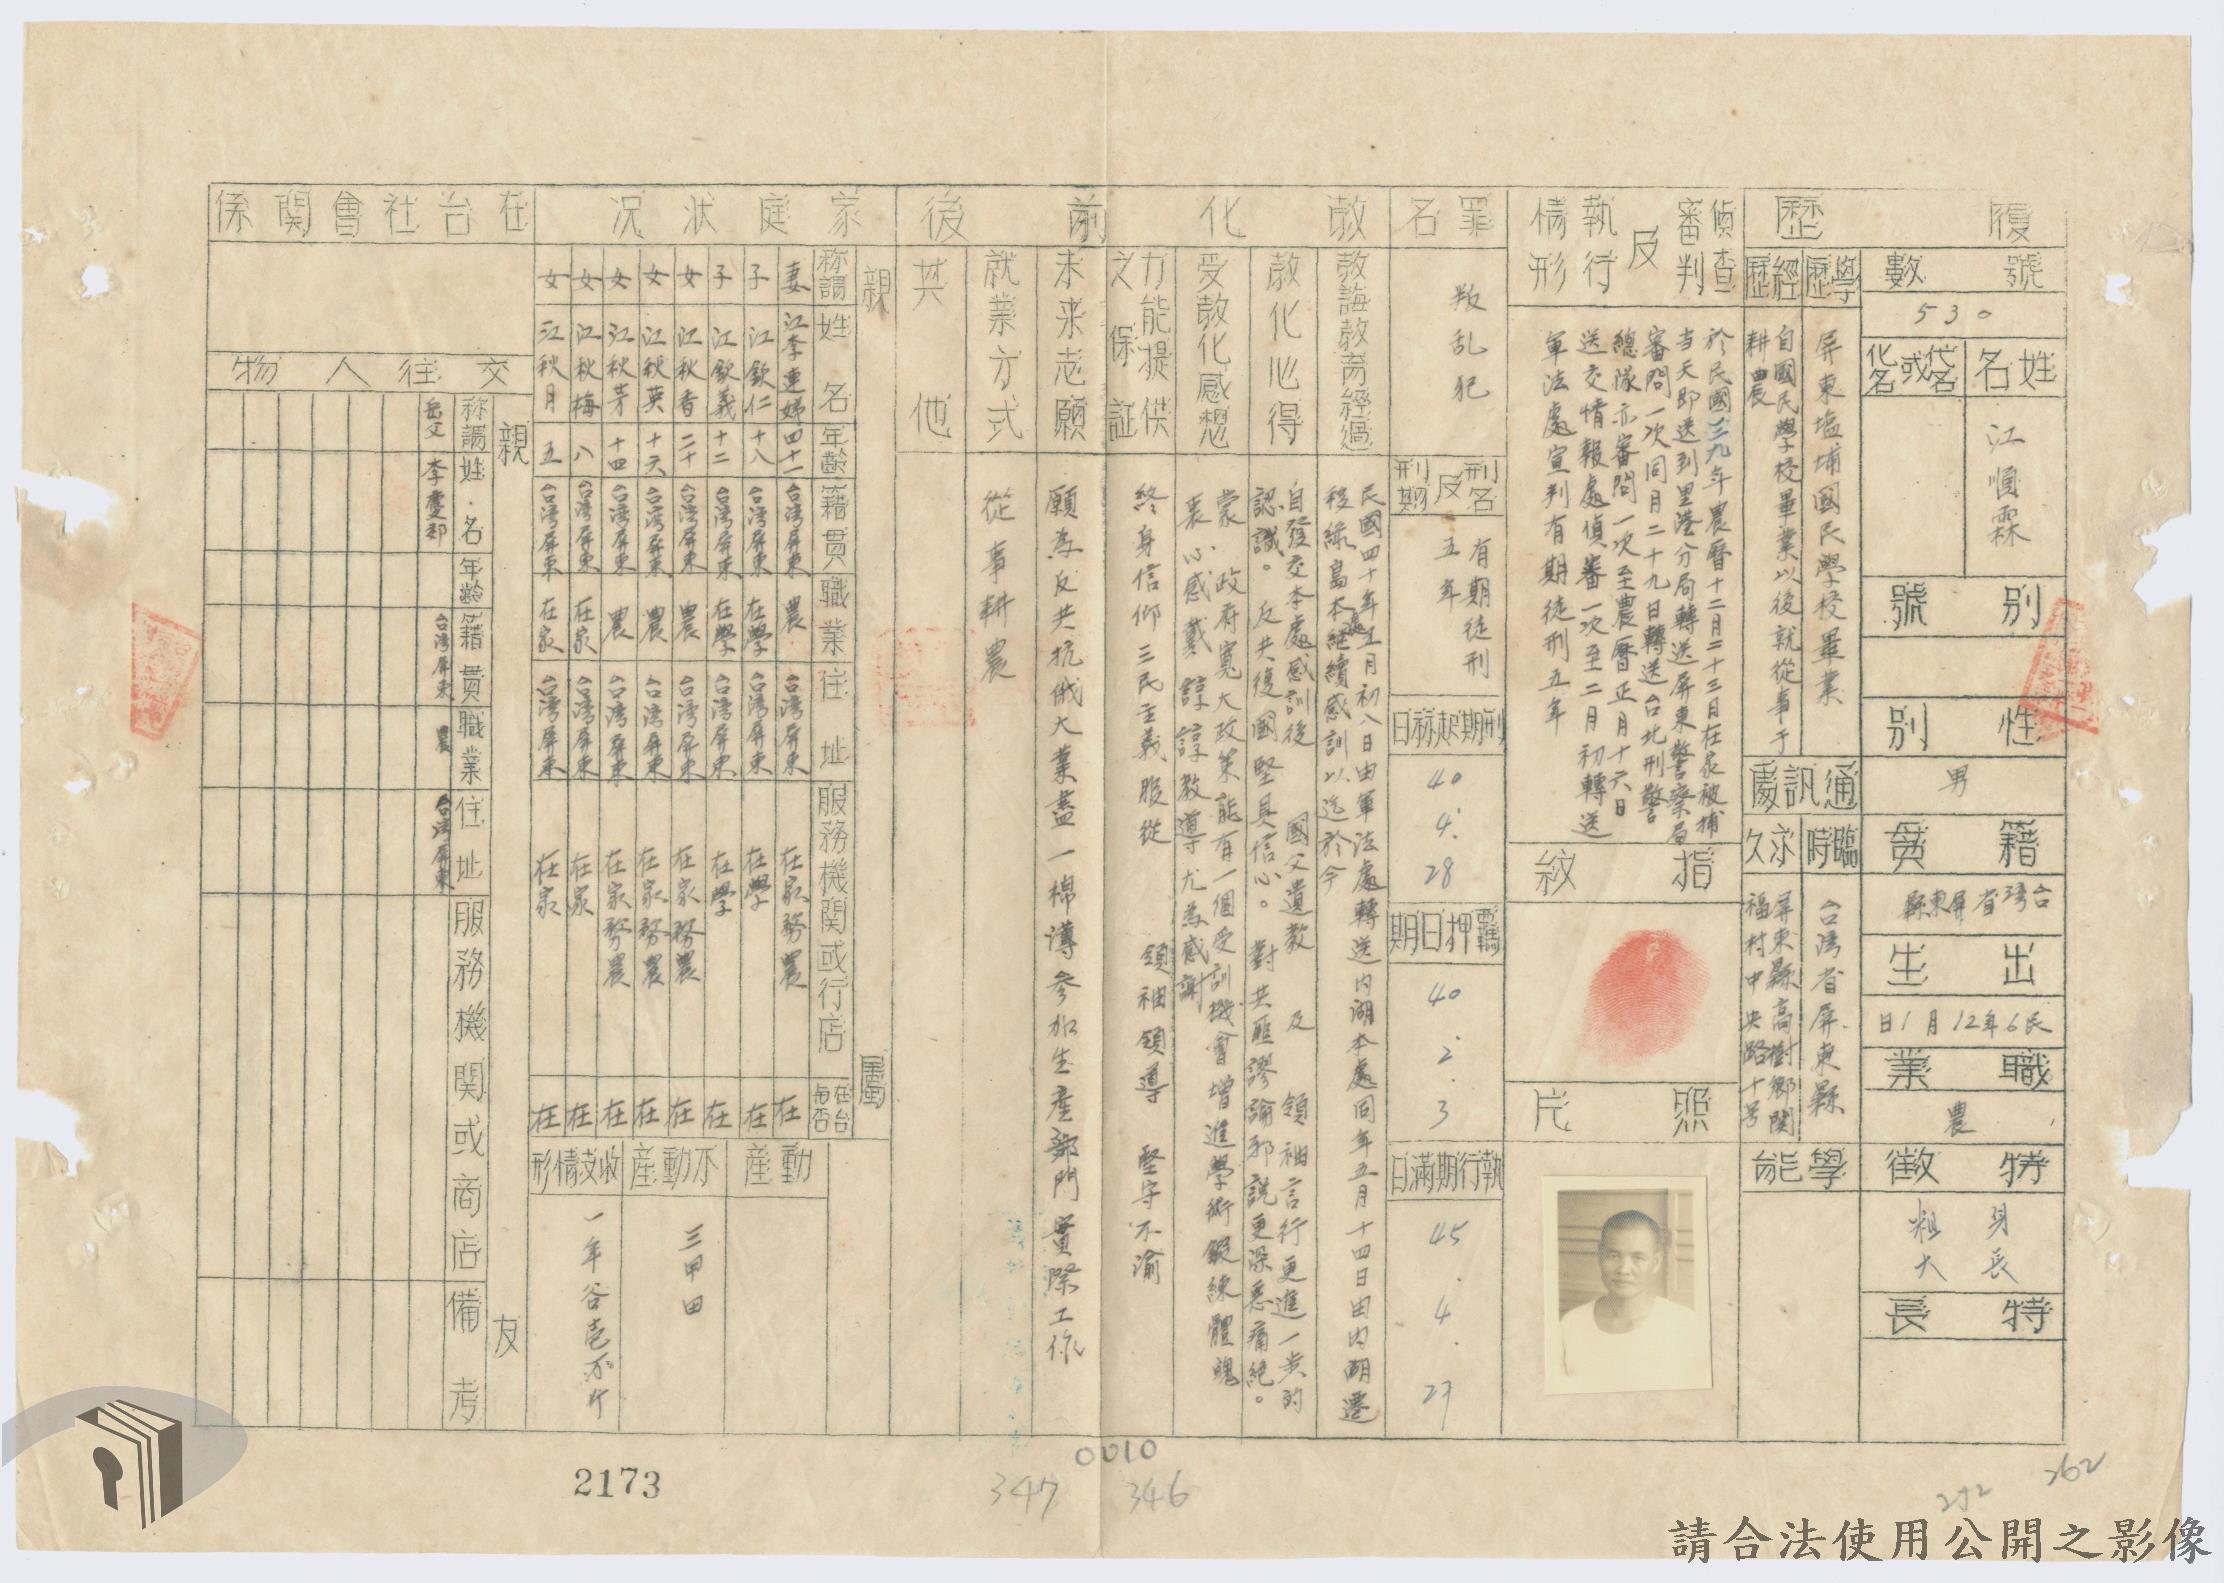 履歷
號數
530
姓名
代名或化名
江順霖
別號
性別
男
籍貫
台灣省屏東縣
出生
民6年12月1日
職業
農
特徵
身長
粗大
特長
學歷
屏東塩埔國民學校畢業
經歷
自國民學校畢業以後就從事于
耕農
通訊處
臨時
台灣省屏東縣
永久
屏東縣高樹鄉関
福村中央路十号
學能
偵查審判及執行情形
於民國三九年農曆十二月二十三日在家被捕
当天即送到里港分局轉送屏東警察局
審問一次同月二十九日轉送台北刑警
總隊亦審問一次至農曆正月十六日
送交情報處偵審一次至二月初轉送
軍法處宣判有期徒刑五年
指紋
照片
罪名
叛乱犯
刑名及刑期
有期徒刑
五年
刑期起祘日
40.4.28
羈押日期
40.2.3
執行期滿日
45.4.27
教化前後
教誨教育經過
民國四十年五月初八日由軍法處轉送內湖本處同年五月十四日由內湖遷
移綠島本處繼續感訓以迄於今
教化心得
自發交本處感訓後 國父遺教 及 領袖言行更進一步的
認識。反共復國堅具信心。對共匪謬論邪說更深惡痛絕。
受教化感想
蒙 政府寬大政策能有一個受訓機會增進學術鍛練體魄
衷心感戴 諄諄教導尤為感謝
力能提供之保証
終身信仰三民主義服從 領袖領導 堅守不渝
未来志願
願為反共抗俄大業盡一棉薄參加生產部門實際工作
就業方式
從事耕農
其他
家庭狀況
親屬
称謂 姓名 年齡 籍貫 職業 住址 服務機関或行店 在台與否
妻 江李連娣 四十一 台湾屏東 農 台湾屏東 在家務農 在
子 江欽仁 十八 台湾屏東 在學 台湾屏東 在學 在
子 江欽義 十二 台湾屏東 在學 台湾屏東 在學 在
女 江秋香 二十 台湾屏東 農 台湾屏東 在家務農 在
女 江秋英 十六 台湾屏東 農 台湾屏東 在家務農 在
女 江秋芳 十四 台湾屏東 農 台湾屏東 在家務農 在
女 江秋梅 八 台湾屏東 在家 台湾屏東 在家 在
女 江秋月 五 台湾屏東 在家 台湾屏東 在家 在
動產
不動產
三甲田
收支情形
一年谷壱万斤
在台社會関係
交往人物
親友
称謂 姓名 年齡 籍貫 職業 住址 服務機関或商店 備考
岳父 李慶郅 台湾屏東 農 台湾屏東
0010
2173
347
346
292
262
請合法使用公開之影像